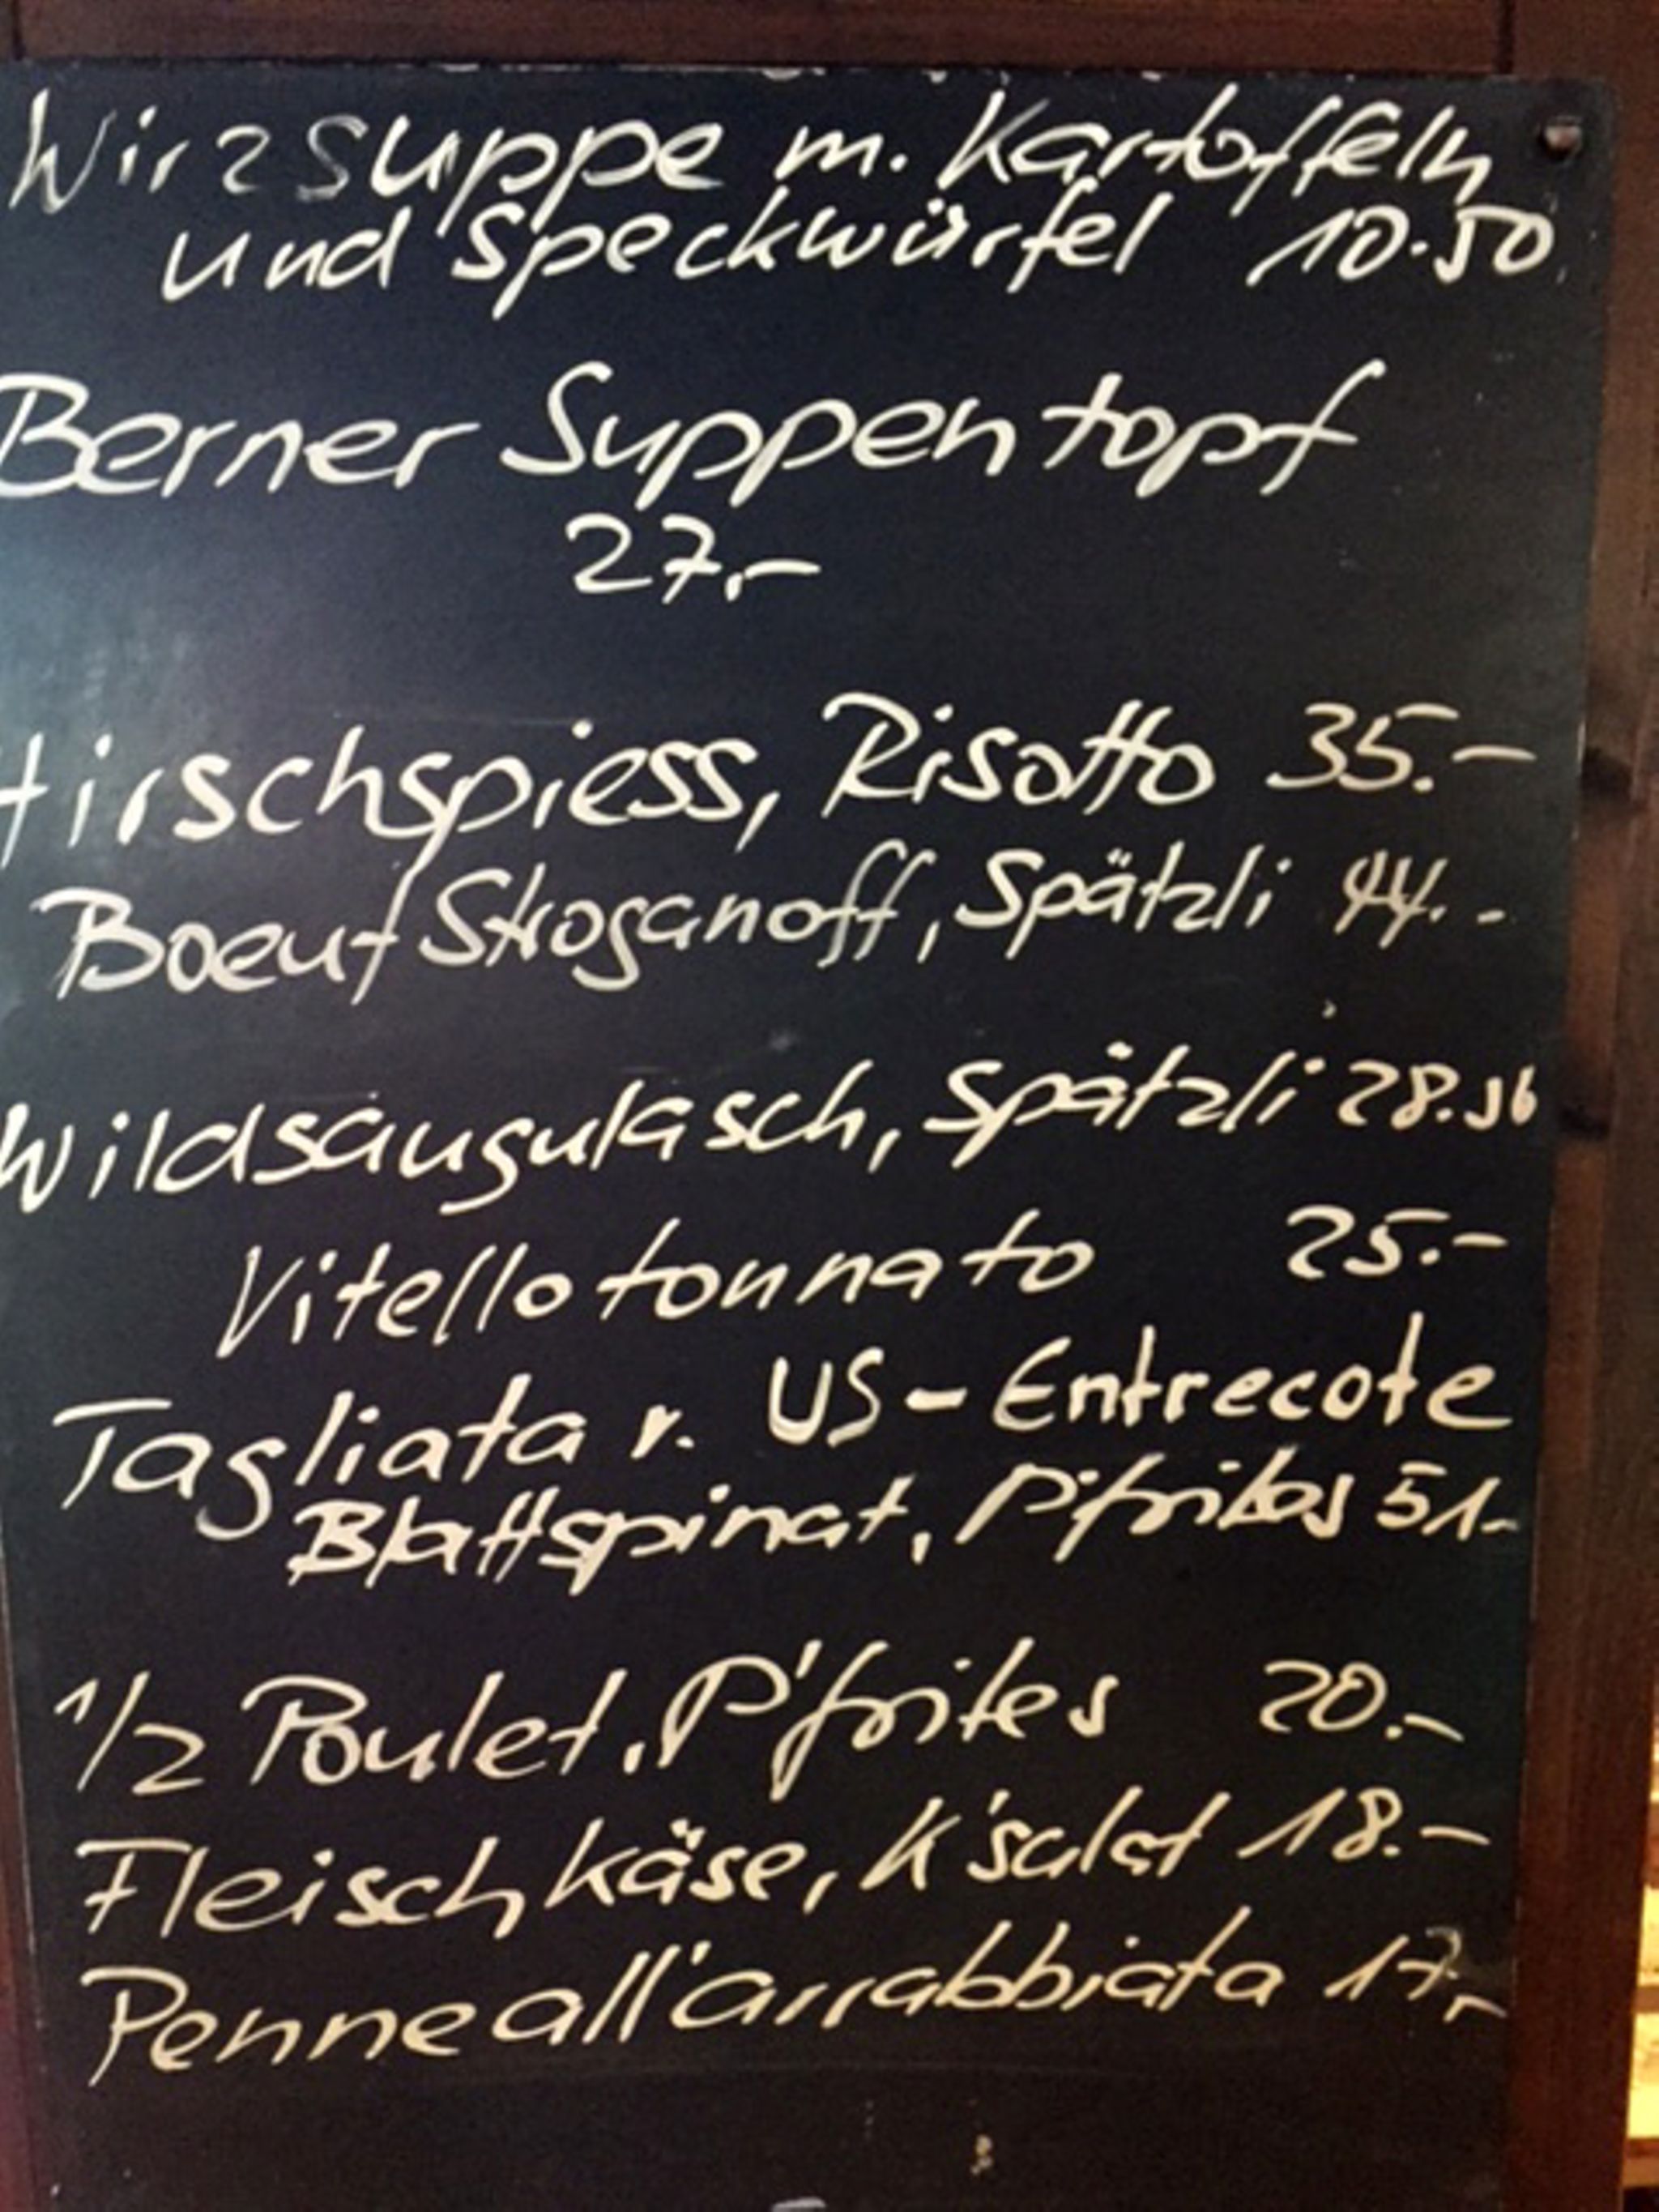 Wirzsuppe m. Kartoffeln
und Speckwürfel 10.50
Berner Suppentopf
27.-
Hirschspiess, Risotto 35.-
Boeuf Stroganoff, Spätzli 44.-
Wildsaugulasch, Spätzli 28.50
Vitello tonnato 25.-
Tagliata v. US-Entrecote
Blattspinat, P'frites 51.-
1/2 Poulet, P'frites 20.-
Fleischkäse, K'salat 18.-
Penne all'arrabbiata 17.-